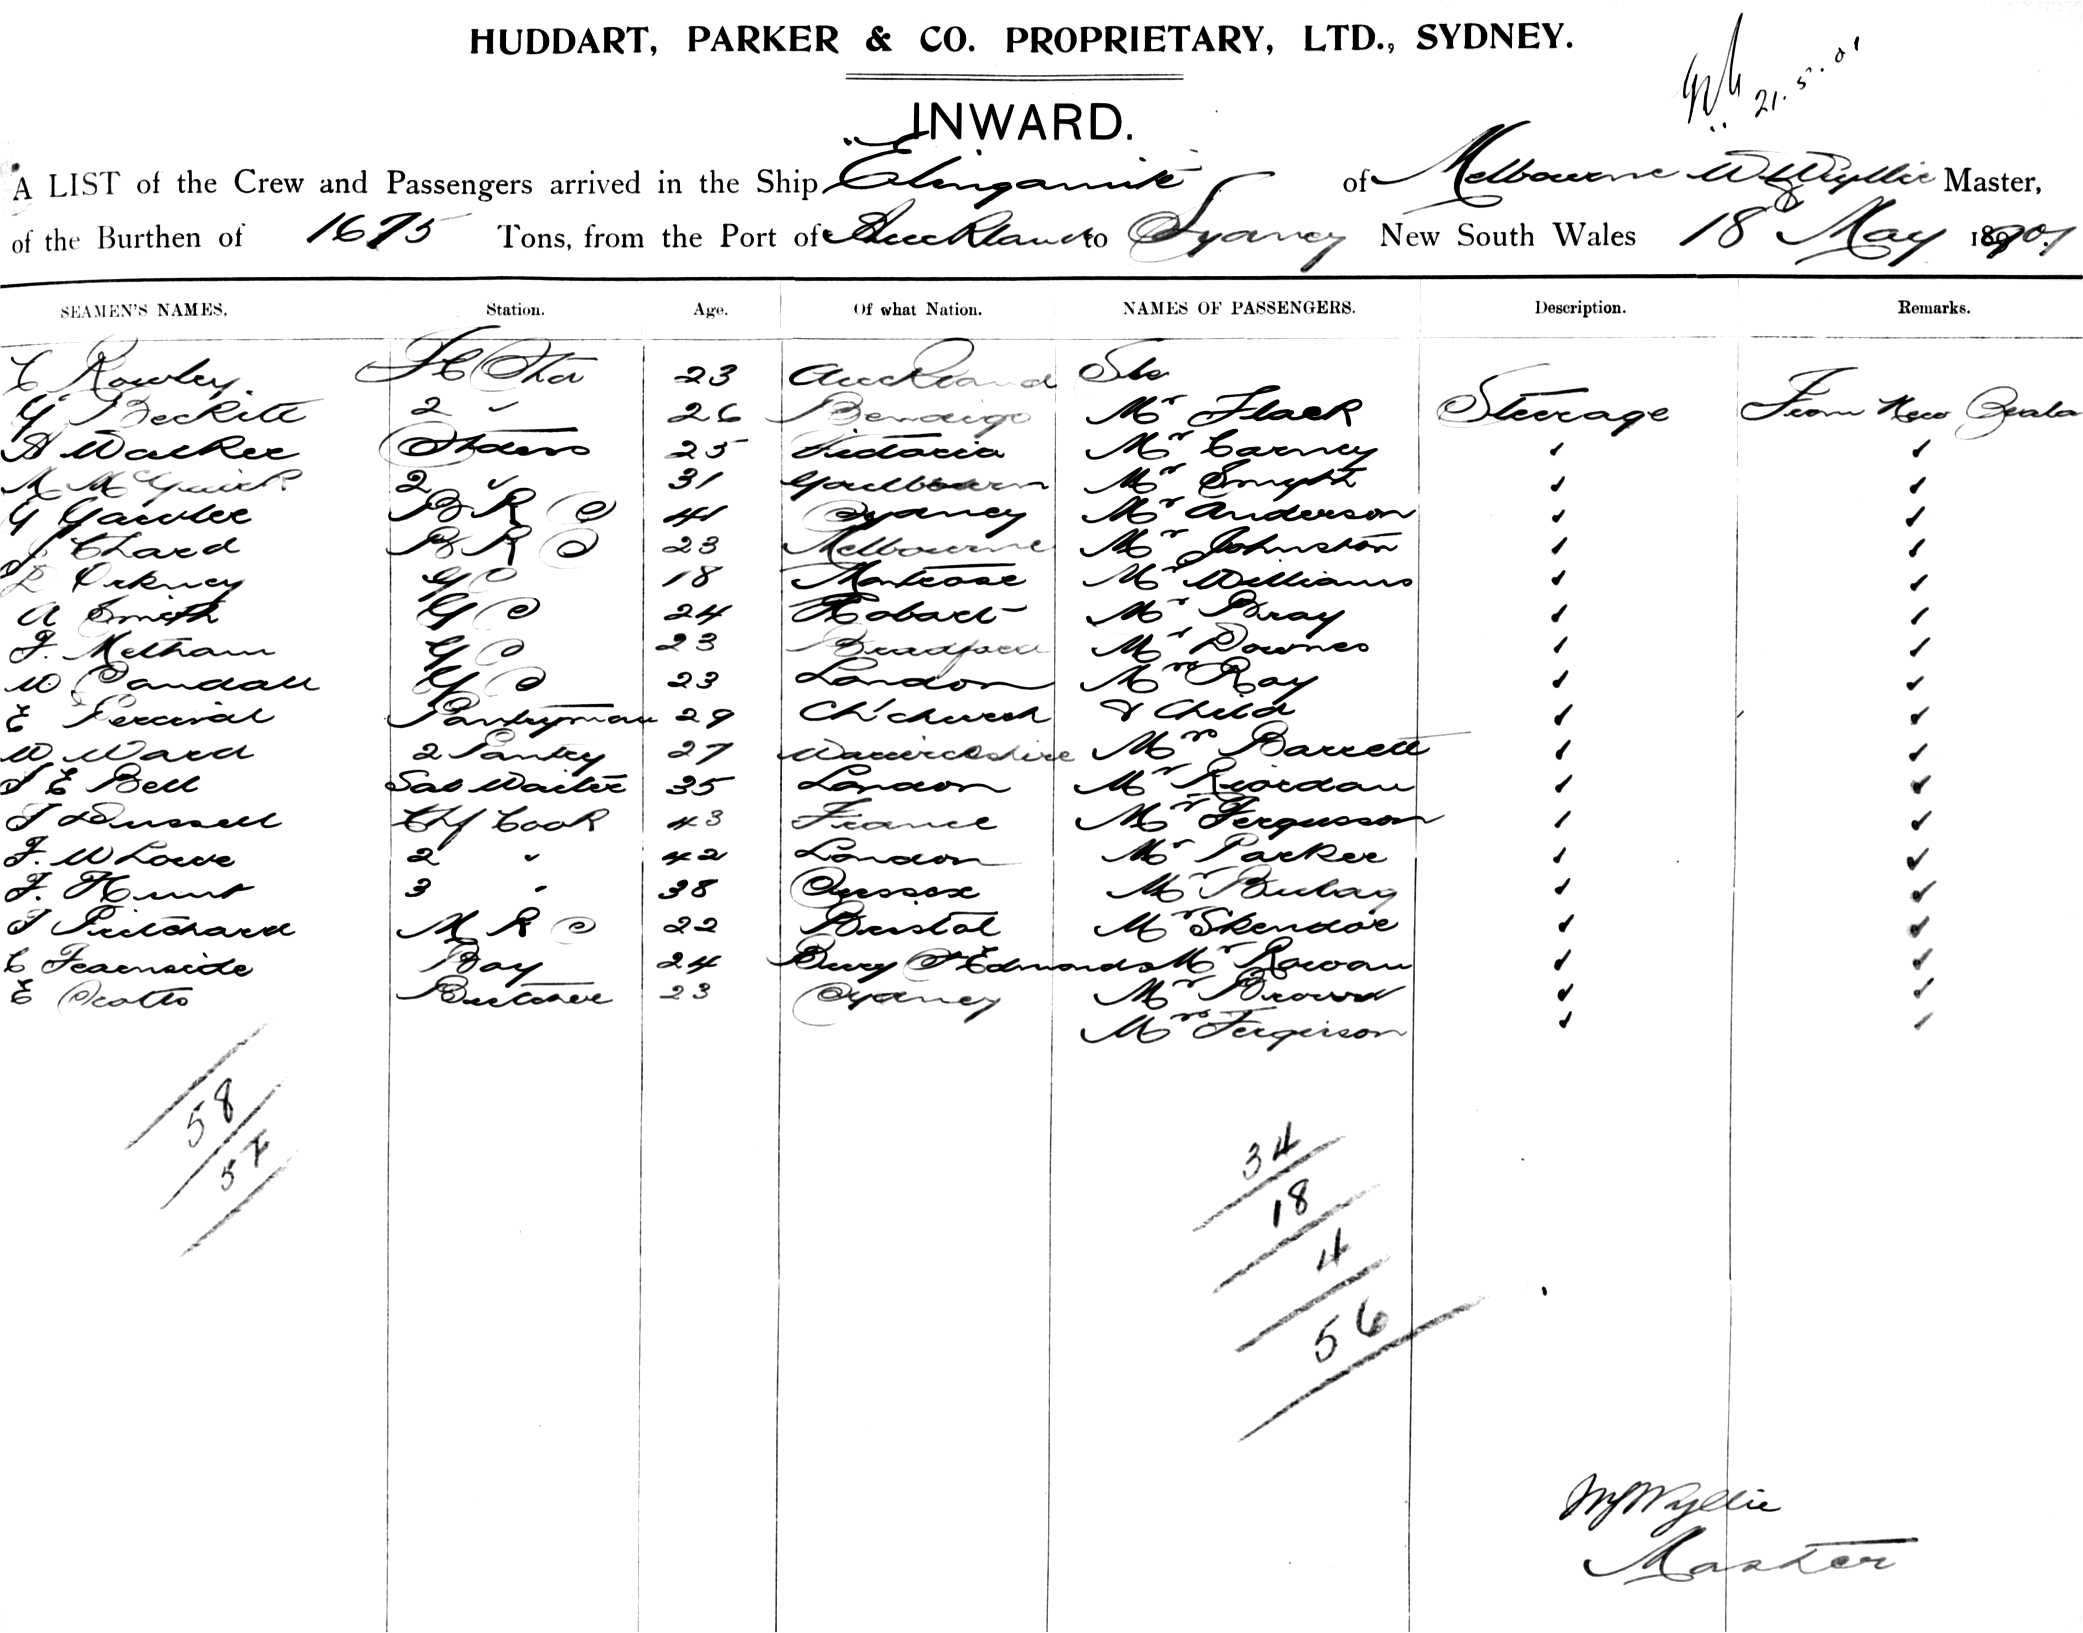 HUDDART, PARKER & CO. PROPRIETARY, LTD., SYDNEY.
21.5.01
INWARD.
A LIST of the Crew and Passengers arrived in the Ship "Elingamite of Melbourne W Wyllie Master,
of the Burthen of 1675 Tons, from the Port of Auckland to Sydney New South Wales 18 May 1901.
SEAMEN'S NAMES. Station. Age. Of what Nation. NAMES OF PASSENGERS. Description. Remarks.
C Rowley. 23 Auckland
G Beckite 2 " 26 Bendigo Mr Flack Steerage From New Zeala
A Walker 25 Victoria Mr Carney ✓ ✓
M McGuirk 2 " 31 Goulbourn Mr Smyth ✓ ✓
G Gawler B R S 41 Sydney Mr Anderson ✓ ✓
J Chard B R S 23 Melbourne Mr Johnston ✓ ✓
Orkney G S 18 Montrose Mr Williams ✓ ✓
A Smith G S 24 Hobart Mr Bray ✓ ✓
F. Metham G S 23 Bradford Mr Downes ✓ ✓
W Randall G S 23 London Mrs Ray ✓ ✓
E Percival Pantryman 29 Ch'church & Child ✓ ✓
W Ward 2 Pantry 27 Warwickshire Mrs Barrett ✓ ✓
J E Bell Sal Waiter 35 London Mr Riordan ✓ ✓
J Dussell Chf Cook 43 France Mr Fergusson ✓ ✓
F. W Lowe 2 " 42 London Mr Parker ✓ ✓
F. Hunt 3 " 38 Sussex Mr ✓ ✓
J Pritchard M R S 22 Bristol Mr Skendor ✓ ✓
C Fearnside Boy 24 Bury St Edmonds Mr Rowan ✓ ✓
E Scotts Butcher 23 Sydney Mr Brown ✓ ✓
Mrs Fergerson ✓ ✓
58
34
57
18
4
56
W Wyllie
Master